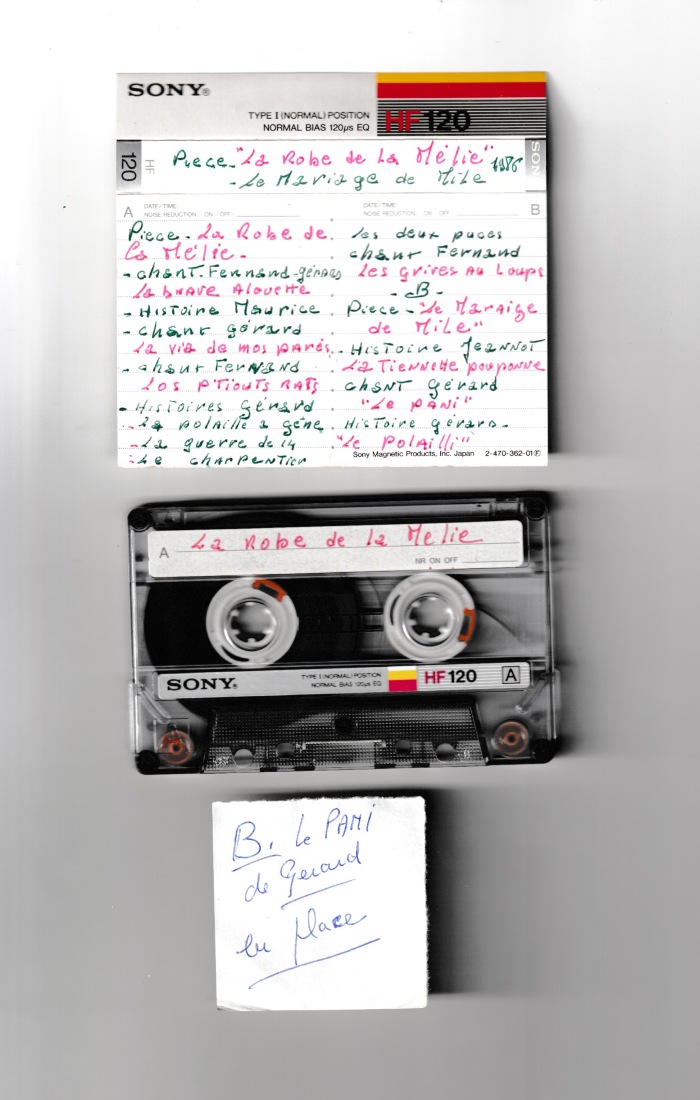 SONY®
TYPE I (NORMAL) POSITION
NORMAL BIAS 120µs EQ
HF 120
120
HF
Piece - "La Robe de La Mélie" 1986
- Le Mariage de Mile
SON
A DATE/TIME:
NOISE REDUCTION ON OFF
DATE/TIME: B
NOISE REDUCTION ON OFF
Piece - La Robe de
La Mélie -
- chanT. Fernand-gérard
La brave Alouette
- Histoire Maurice
- chant gérard
La via de mos parés
- chant Fernand
Los p'tiouts rats
- Histoires Gérard
- La polaille a gêne
- La guerre de 14
- Le charpentier
Les deux puces
chant Fernand
Les grives Au Loups
- B -
Piece - "Le Maraige
de Mile"
- Histoire Jeannot
La Tiennette pouponne
chant Gérard
"Le pani"
Histoire gérard -
"Le Polailli"
Sony Magnetic Products, Inc. Japan 2-470-362-01Ⓕ
A La Robe de la Melie
NR ON OFF
SONY®
TYPE I (NORMAL) POSITION
NORMAL BIAS 120µs EQ
HF 120 A
B. Le PANI
de Gerard
en place